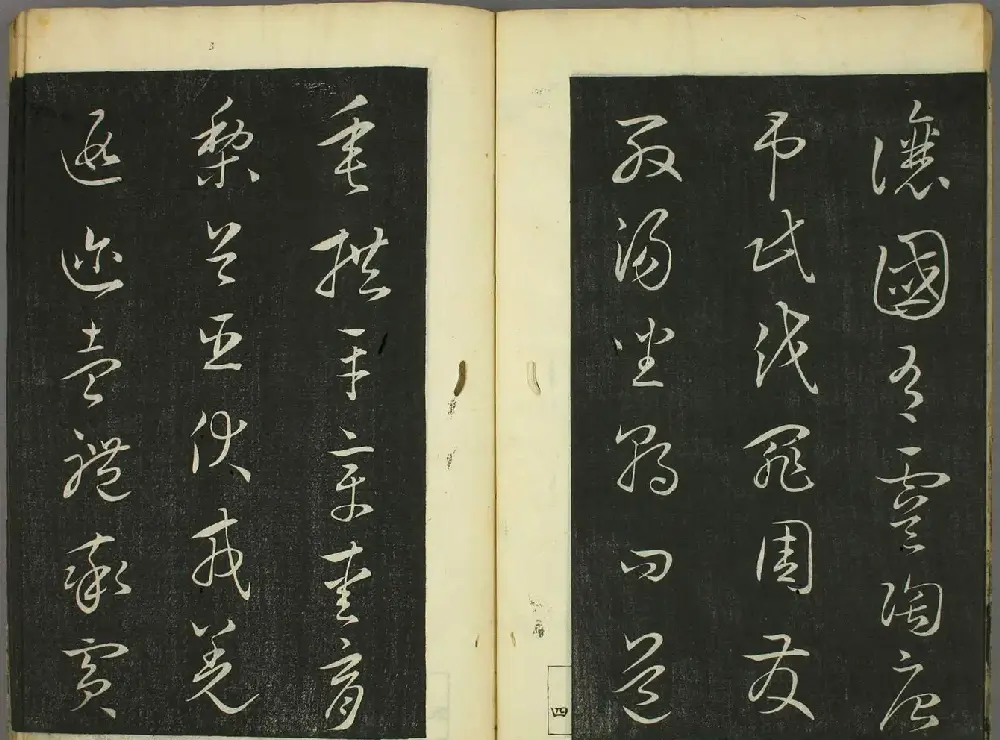 讓國有虞陶唐
弔民伐罪周發
殷湯坐朝問道
四
垂拱平章愛育
黎首臣伏戎羌
遐邇壹體率賓